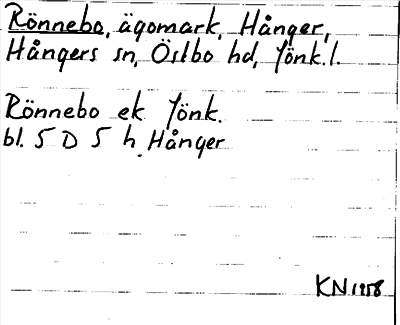 Rönnebo, ägomark, Hånger,
Hångers sn, Östbo hd, Jönk. l.
Rönnebo ek Jönk.
bl. 5 D 5 h, Hånger
KN 1958